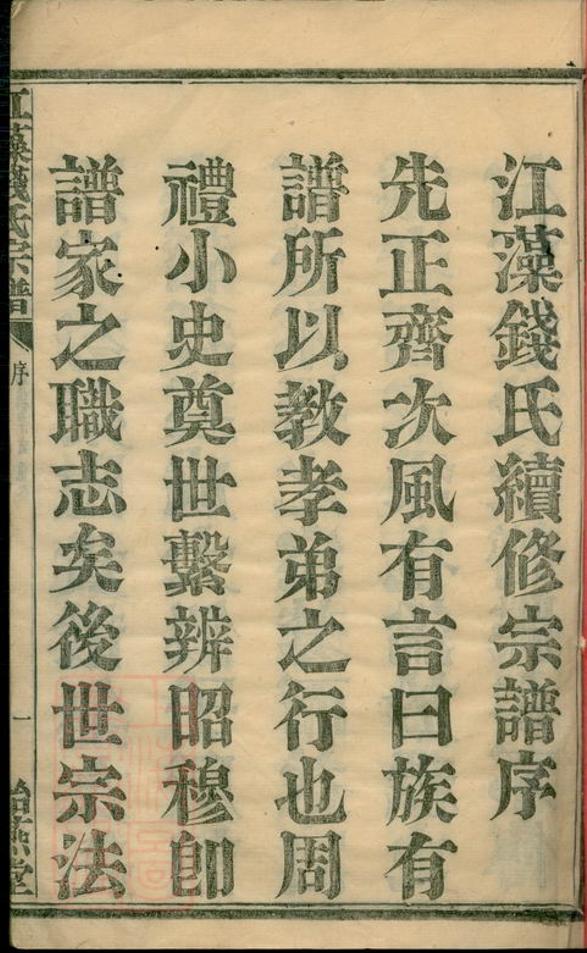 江藻錢氏續修宗譜序
先正齊次風有言曰族有
譜所以教孝弟之行也周
禮小史奠世繫辨昭穆卽
譜家之職志矣後世宗法
江藻錢氏宗譜
序
一